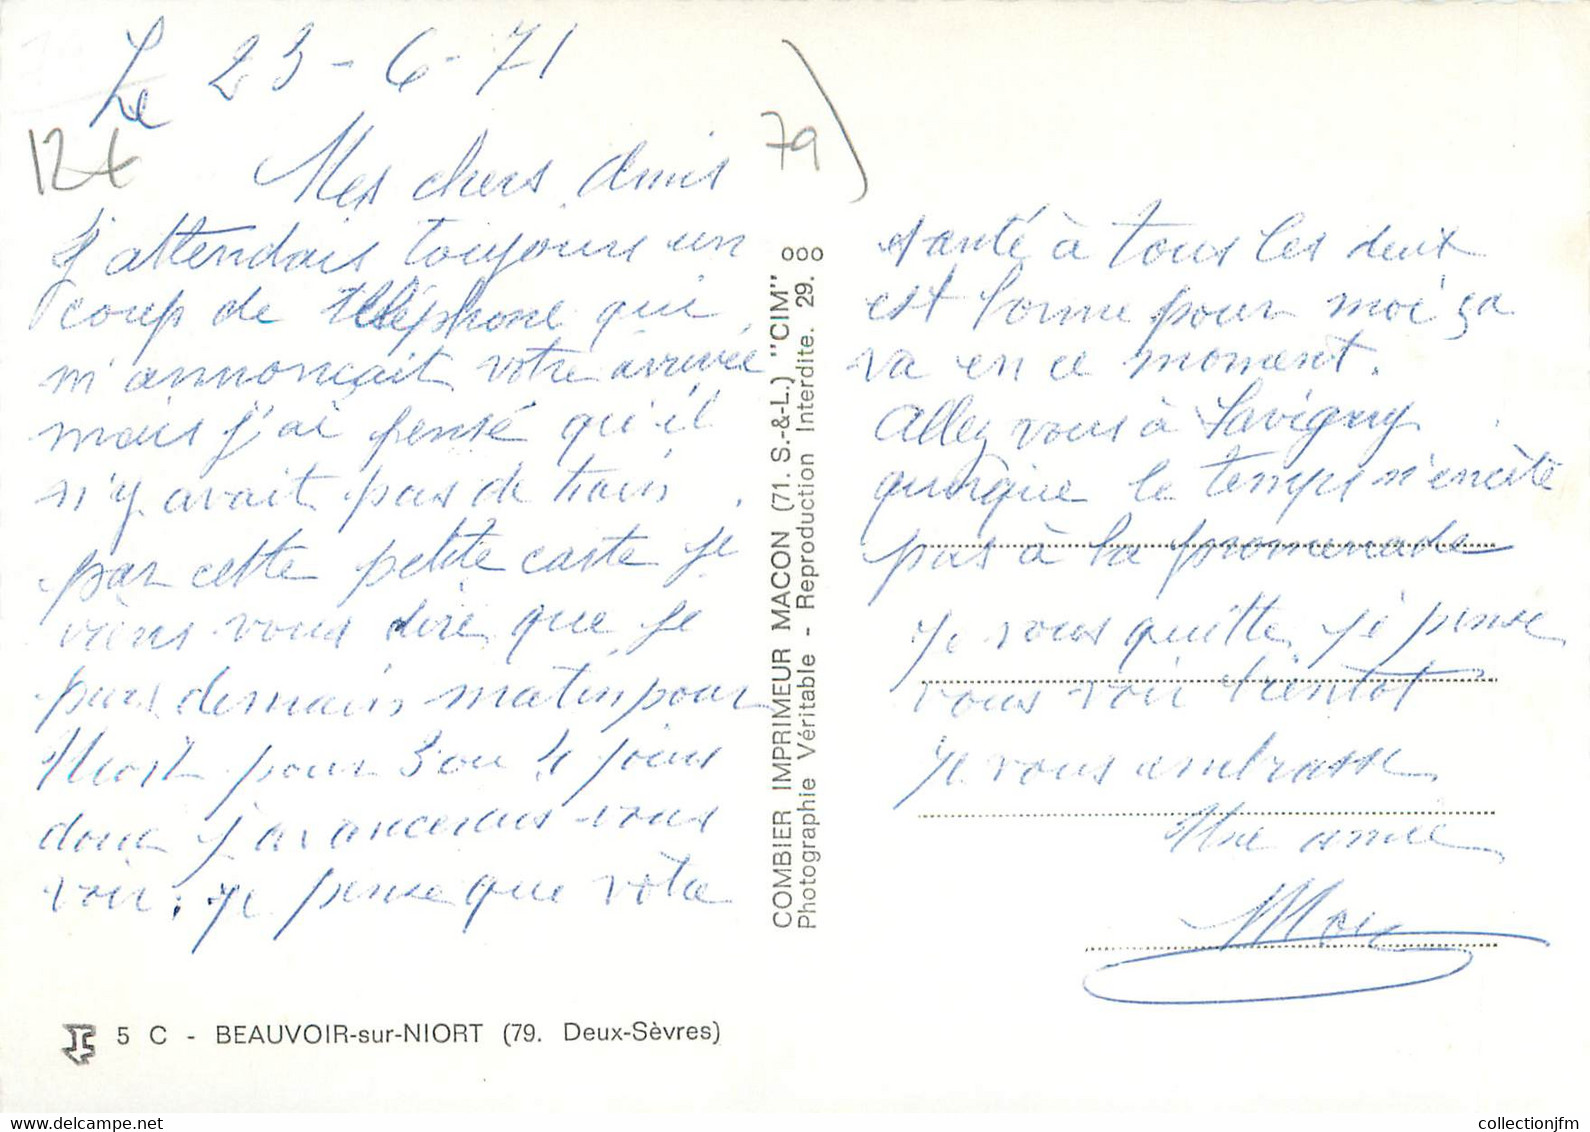 Le 23-6-71
12t
79
Mes chers Amis
J'attendais toujours un
coup de téléphone qui
m'annonçait votre arrivée
mais j'ai pensé qu'il
n'y avait pas de train.
par cette petite carte je
viens vous dire que je
pars demain matin pour
Niort pour 3 ou 4 jours
donc j'avancerais vous
voir. je pense que votre
santé à tous les deux
est bonne pour moi ça
va en ce moment.
Allez vous à Savigny
quoique le temps n'encite
pas à la promenade
je vous quitte je pense
vous voir bientot
je vous embrasse
Une amie
COMBIER IMPRIMEUR MACON (71. S.-&-L.) "CIM"
Photographie Véritable - Reproduction Interdite. 29.
5 C - BEAUVOIR-sur-NIORT (79. Deux-Sèvres)
collectionjfm